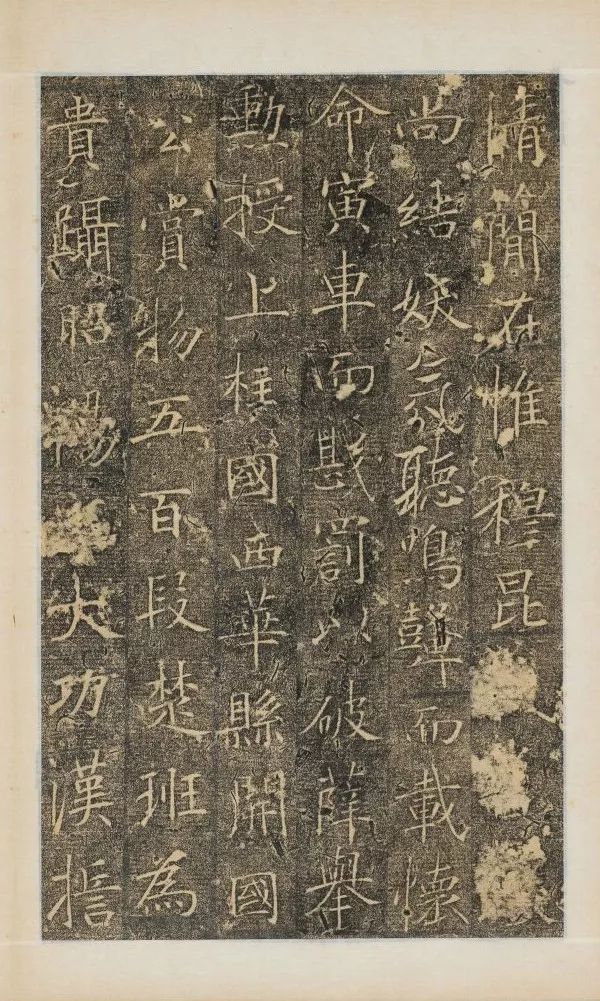 情簡在惟穆昆
尚結妖氛聽鳴鼙而載懷
命寅車而戡罰以破薛舉
勳授上柱國西華縣開國
公賞物五百段楚班為
貴躡昭陽大功漢